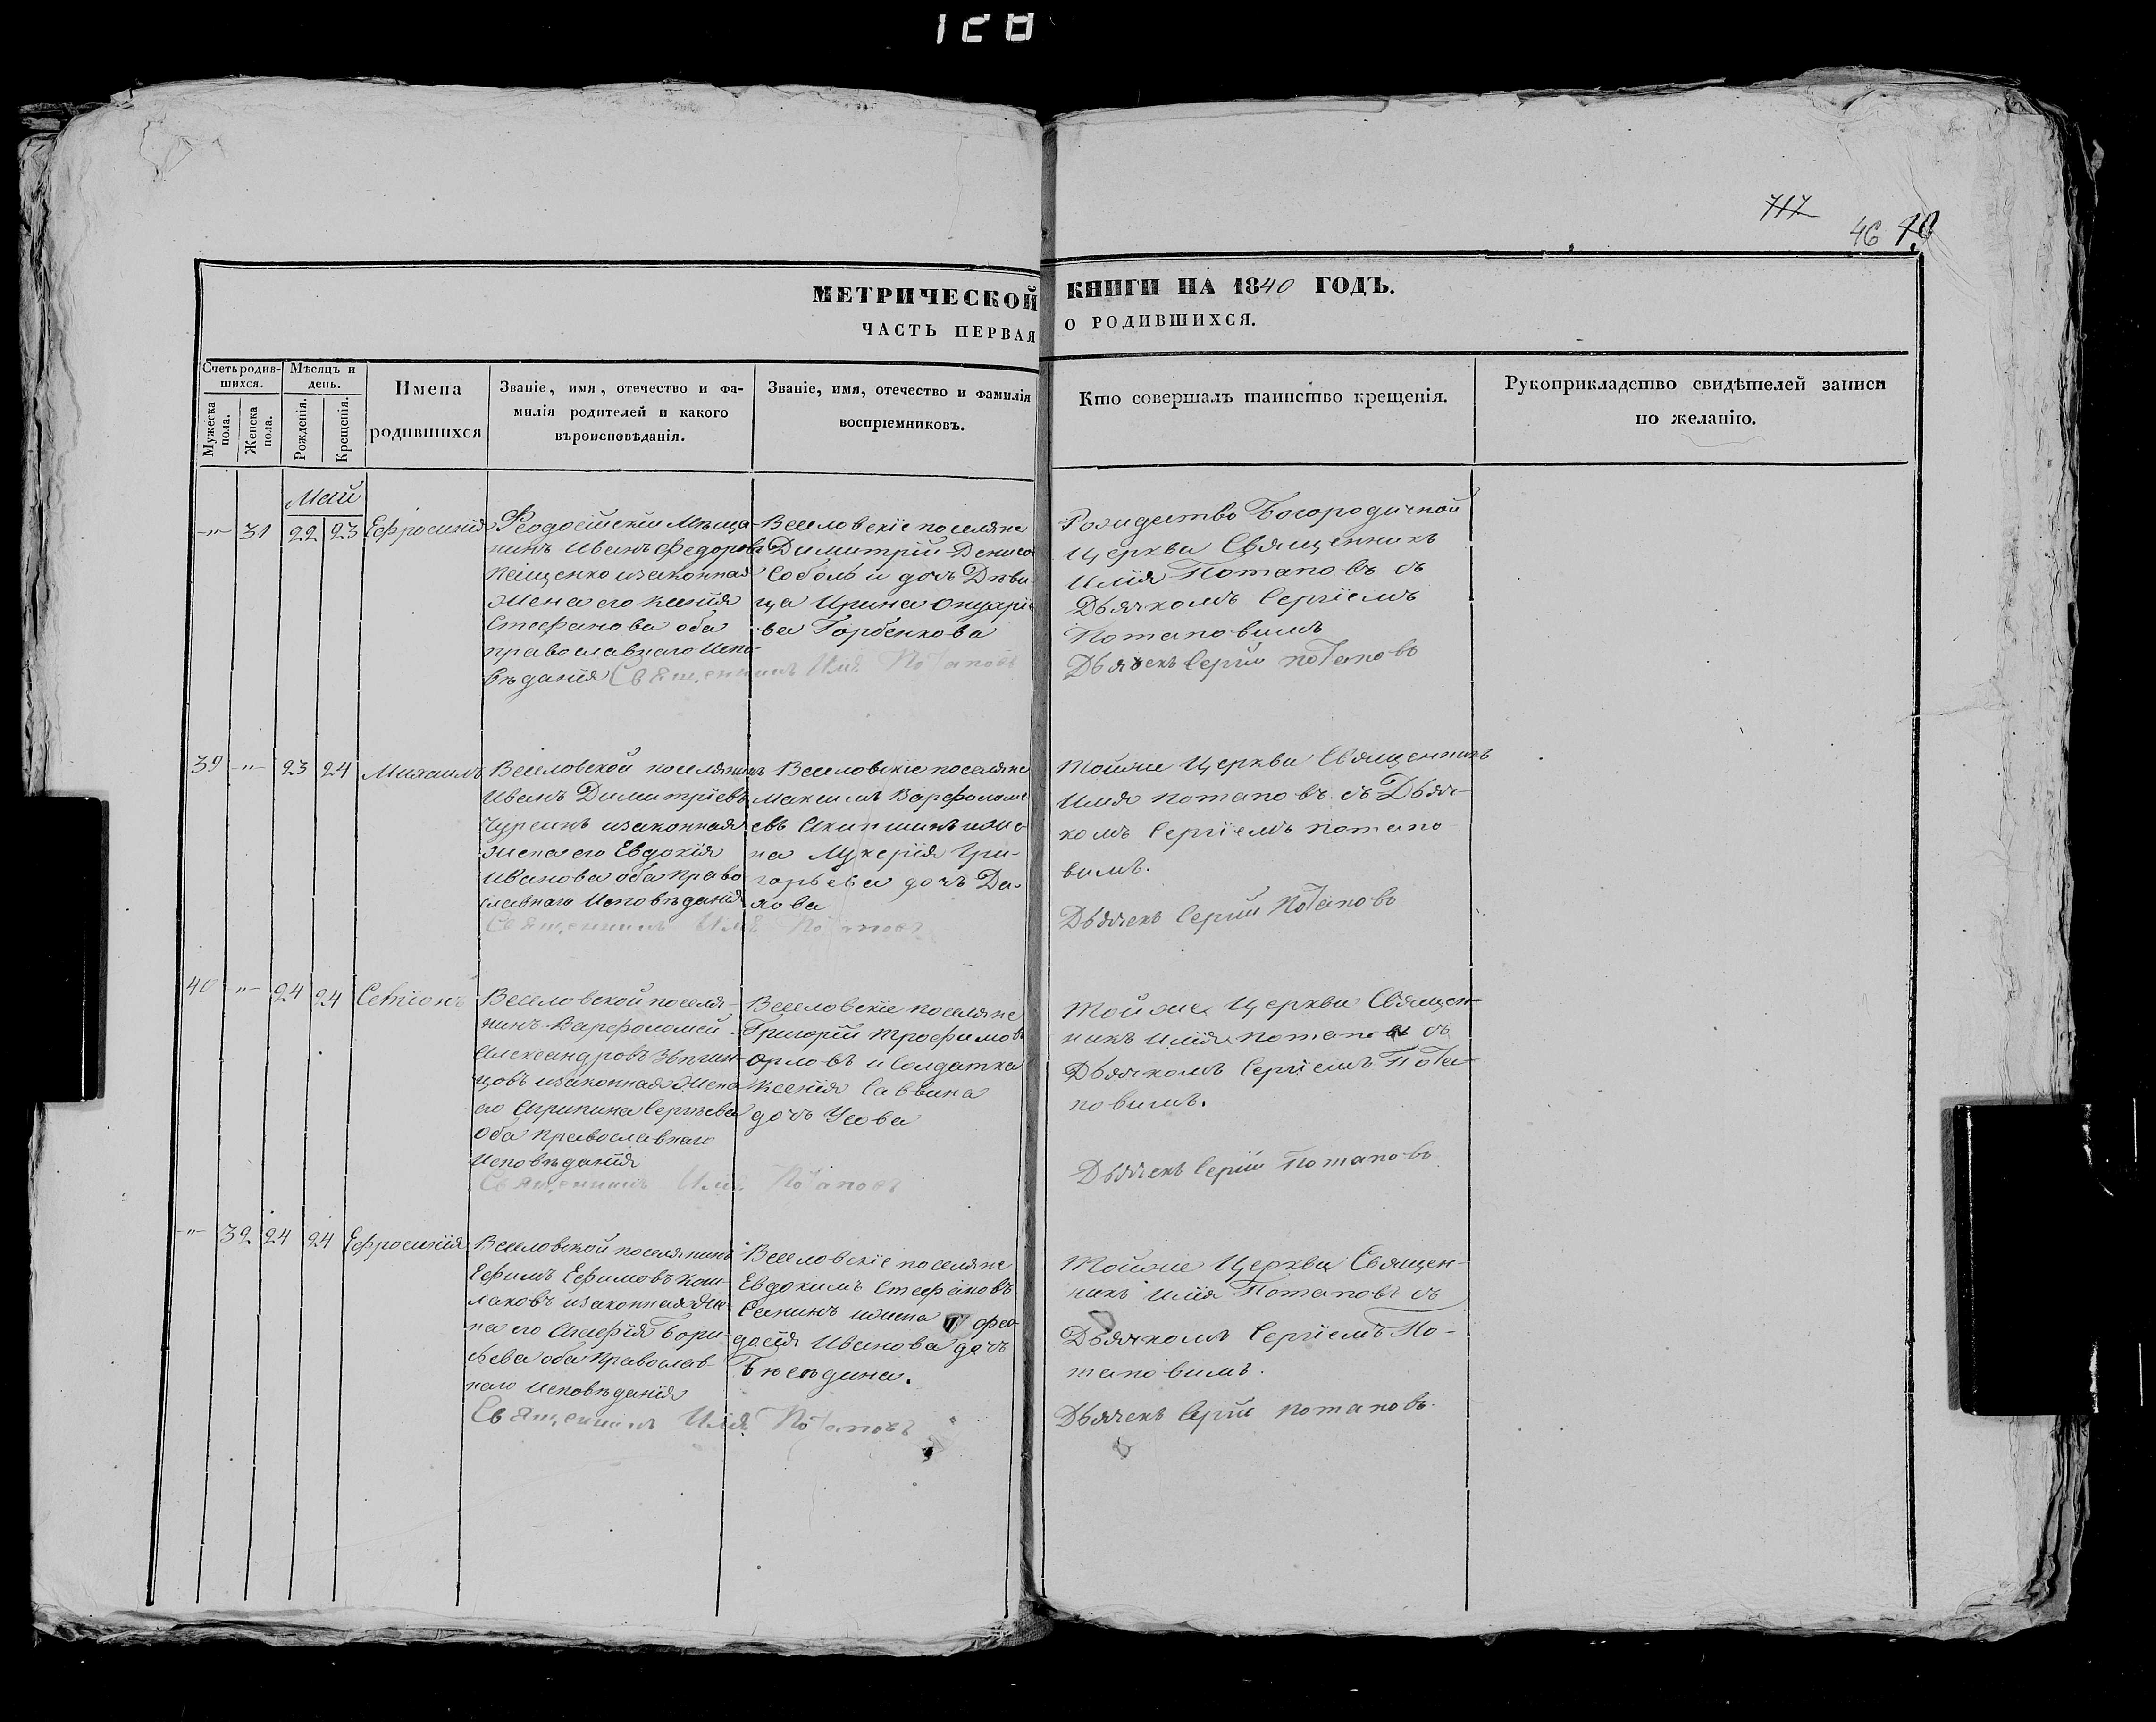 128
717
46
МЕТРИЧЕСКОЙ КНИГИ НА 1840 ГОДЪ.
ЧАСТЬ ПЕРВАЯ О РОДИВШИХСЯ.
Счетъ родив-
шихся.
Мужеска
пола.
Женска
пола.
Мѣсяцъ и
день.
Рожденія.
Крещенія.
Имена
родившихся
Званіе, имя, отечество и фа-
милія родителей и какого
вѣроисповѣданія.
Званіе, имя, отечество и фамилія
воспріемниковъ.
Кто совершалъ таинство крещенія.
Рукоприкладство свидѣтелей записи
по желанію.
Май
-"- 31 22 23 Ефросинія
Феодосійскій Мѣща-
нинъ Иванъ Федоровъ
изаконная
Жена его Ксенія
Стефанова оба
православнаго Испо-
вѣданія
Веселовскіе поселяне
Димитрій Денисо
Соболь и дочь Дѣви-
ца Ирина
ва Горбенкова
Священникъ Илія Потаповъ
Рождество Богородичной
Церкви Священникъ
Илія Потаповъ съ
Дьячкомъ Сергіемъ
Потаповимъ
Дьячекъ Сергій Потаповъ
39 -"- 23 24 Михаилъ
Веселовской поселянинъ
Иванъ Димитріевъ
Чуреинъ изаконная
Жена его Евдокія
Иванова оба Право
славнаго Исповѣданія
Веселовскіе поселяне
Максимъ Варфоломе
евъ иже-
на Лукерія Гри-
горьева дочь
Священникъ Илія Потаповъ
Тойже Церкви Священникъ
Илія Потаповъ съ Дьяч-
комъ Сергіемъ Потапо
вимъ.
Дьячекъ Сергій Потаповъ
40 "- 24 24
Веселовской поселя-
нинъ Варфоломей
Александровъ
изаконная Жена
его Агрипина Сергѣева
оба православнаго
Исповѣданія
Веселовскіе поселяне
Григорій Трофимовъ
Орловъ и Солдатка
Ксенія Саввина
дочь Усова
Священникъ Илія Потаповъ
Тойже Церкви Священ-
никъ Илія Потаповъ съ
Дьячкомъ Сергіемъ Пота-
повимъ.
Дьячекъ Сергій Потаповъ
-"- 32 24 24 Ефросинія
Веселовской поселянинъ
Ефимъ Ефимовъ Кош-
лаковъ изаконная Же
на его
оба Православ-
наго Исповѣданія
Веселовскіе поселяне
Евдокимъ Стефановъ
Санинъ ижена Фео-
досія Иванова дочь
Бѣседина.
Священникъ Илія Потаповъ
Тойже Церкви Священ-
никъ Илія Потаповъ съ
Дьячкомъ Сергіемъ По-
таповимъ.
Дьячекъ Сергій Потаповъ